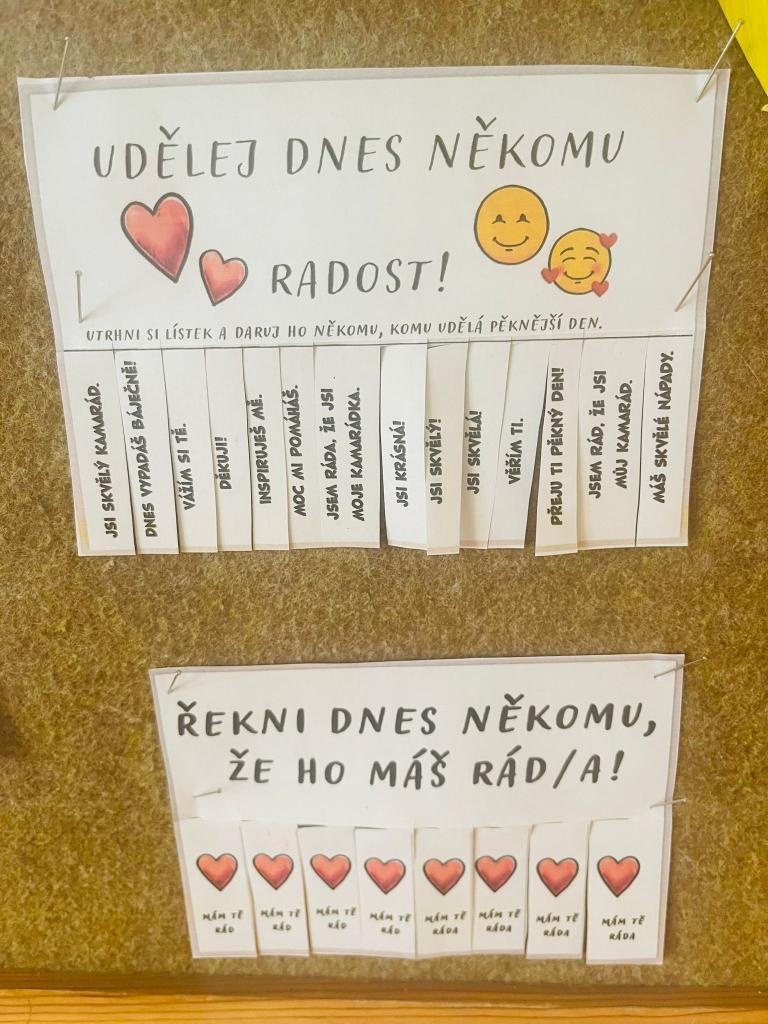 UDĚLEJ DNES NĚKOMU
RADOST!
UTRHNI SI LÍSTEK A DARUJ HO NĚKOMU, KOMU UDĚLÁ PĚKNĚJŠÍ DEN.
JSI SKVĚLÝ KAMARÁD.
DNES VYPADÁŠ BÁJEČNĚ!
VÁŽÍM SI TĚ.
DĚKUJI!
INSPIRUJEŠ MĚ.
MOC MI POMÁHÁŠ.
JSEM RÁDA, ŽE JSI
MOJE KAMARÁDKA.
JSI KRÁSNÁ!
JSI SKVĚLÝ!
JSI SKVĚLÁ!
VĚŘÍM TI.
PŘEJU TI PĚKNÝ DEN!
JSEM RÁD, ŽE JSI
MŮJ KAMARÁD.
MÁŠ SKVĚLÉ NÁPADY.
ŘEKNI DNES NĚKOMU,
ŽE HO MÁŠ RÁD/A!
MÁM TĚ
RÁD
MÁM TĚ
RÁD
MÁM TĚ
RÁD
MÁM TĚ
RÁD
MÁM TĚ
RÁDA
MÁM TĚ
RÁDA
MÁM TĚ
RÁDA
MÁM TĚ
RÁDA